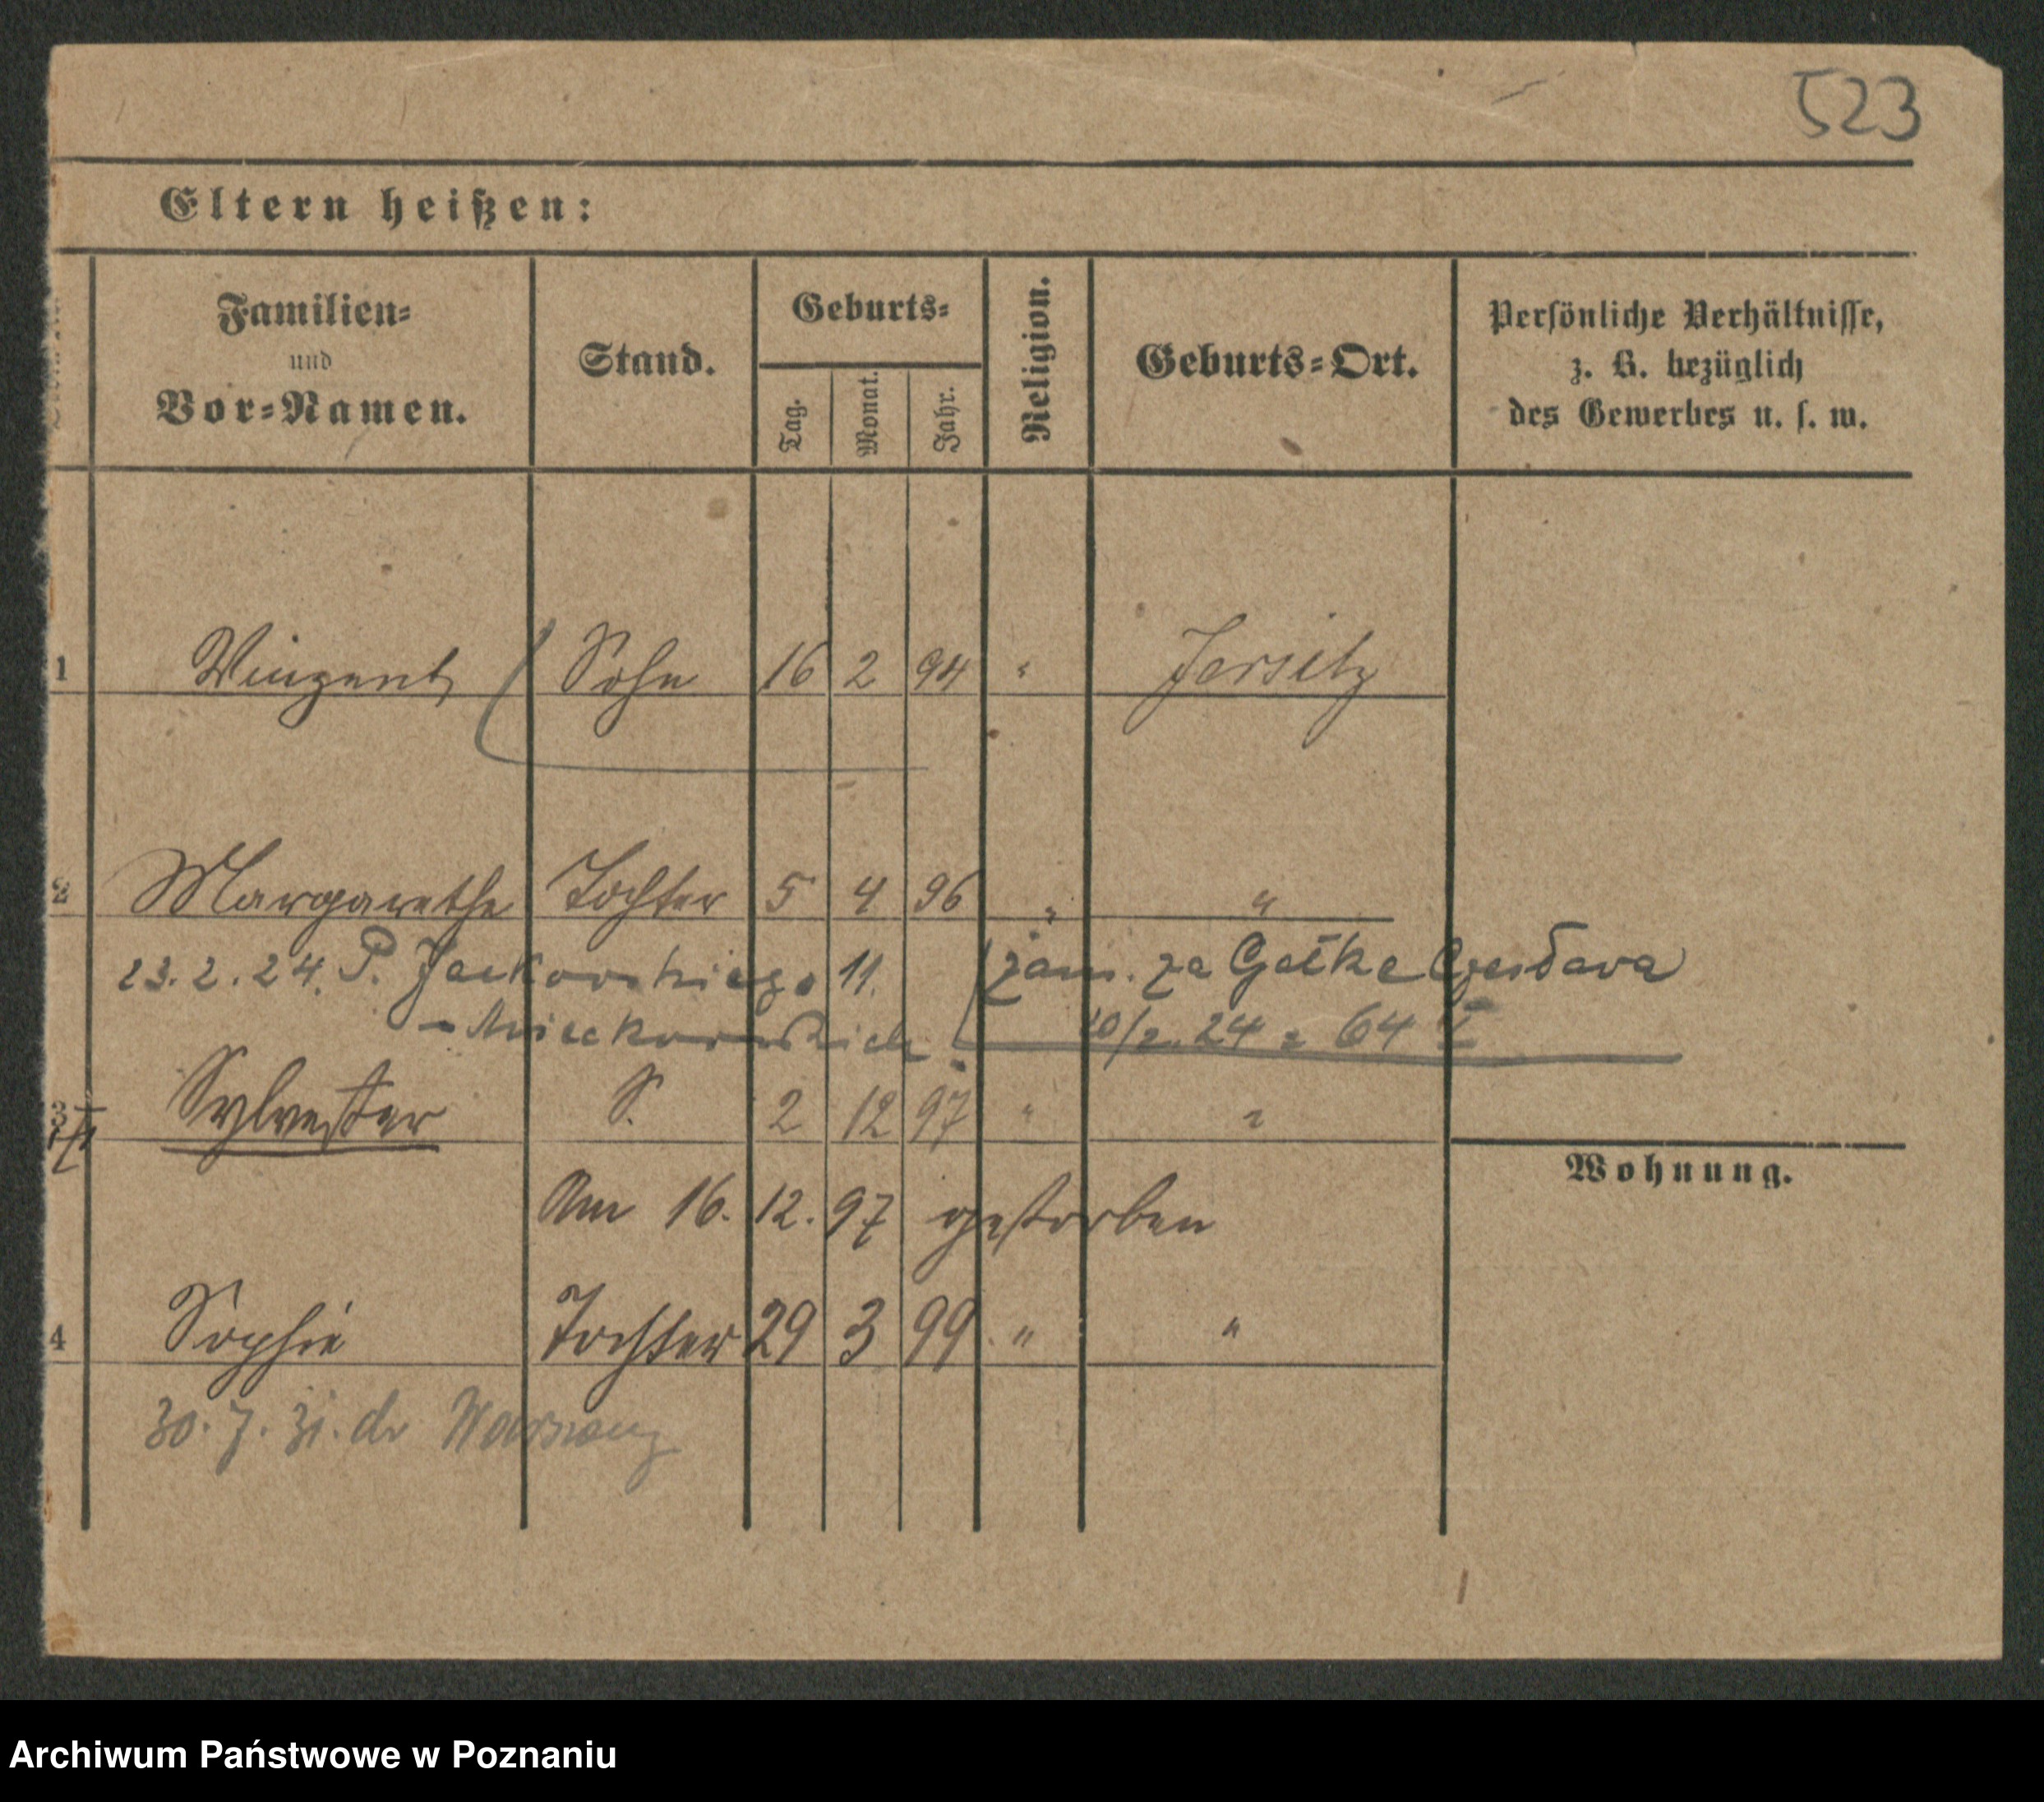 523
Eltern heißen:
Familien-
und
Vor-Namen.
Stand.
Geburts-
Tag.
Monat.
Jahr.
Religion.
Geburts-Ort.
Persönliche Verhältnisse,
z. B. bezüglich
des Gewerbes u. s. w.
1 Vinzent Sohn 16 2 94 " Jersitz
2 Margarethe Tochter 5 4 96 " "
23.2.24. P. Jackowskiego 11. zam. za
10/2.24 = 64
3 Sylvester S. 2 12 97 " "
Wohnung.
Am 16. 12. 97 gestorben
4 Sophie Tochter 29 3 99 " "
30. 7. 31. do Warszawy
Archiwum Państwowe w Poznaniu